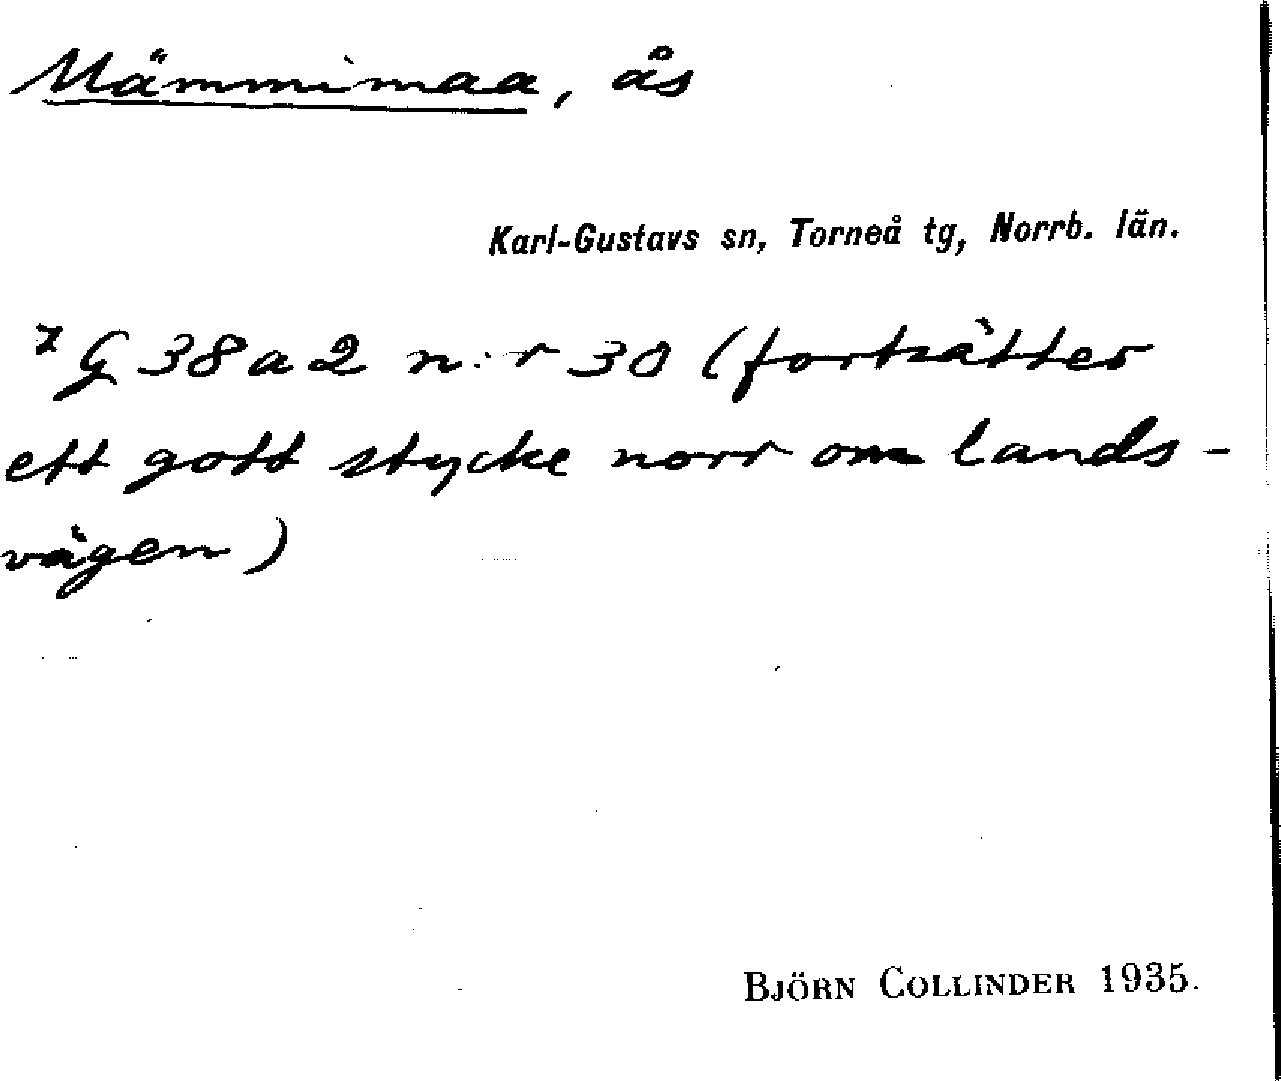 Mämmimaa, ås
Karl-Gustavs sn, Torneå tg, Norrb. län.
G 38 a 2 n:r 30 (fortsätter
ett gott stycke norr om lands-
vägen)
BJÖRN COLLINDER 1935.